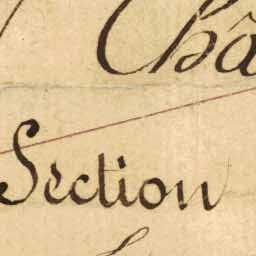 Châ
Section